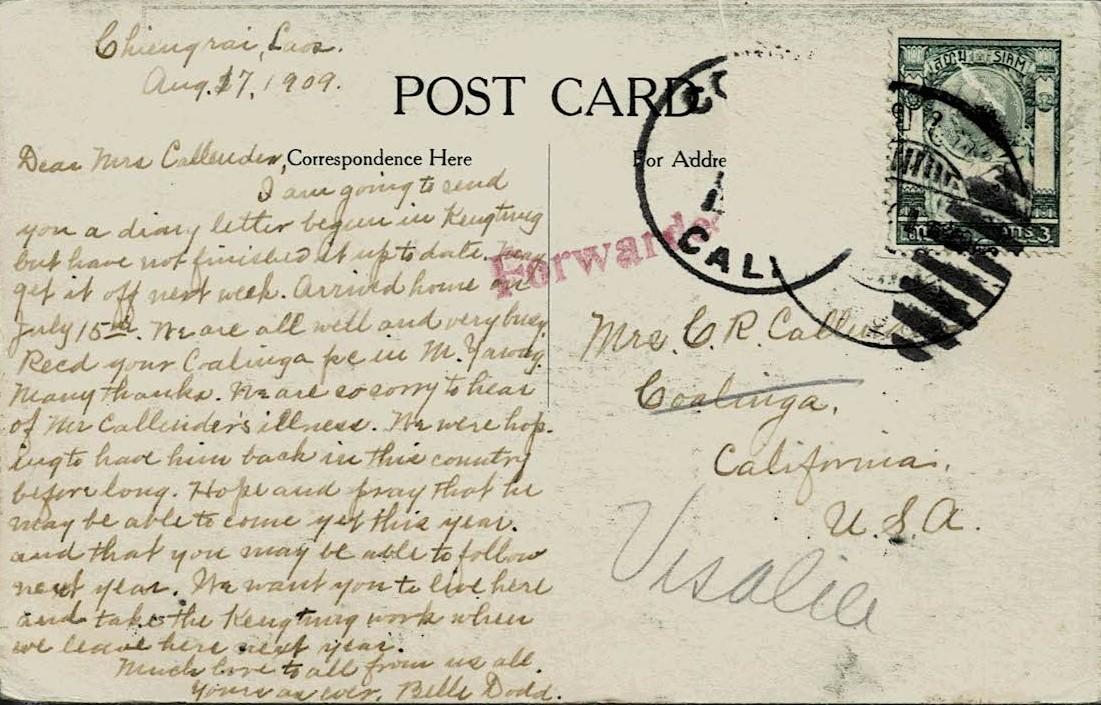 Chiengrai, Laos.
Aug. 17, 1909.
POST CARD
Correspondence Here
Dear Mrs Callender,
I am going to send
you a diary letter begun in Kengtung
but have not finished it up to date. may
get it off next week. Arrived home on
July 15th. We are all well and very busy
Recd your Coalinga pc in M. Yawng.
Many thanks. We are so sorry to hear
of Mr Callender's illness. We were hop-
ing to have him back in this country
before long. Hope and pray that he
may be able to come yet this year.
and that you may be able to follow
next year. We want you to live here
and take the Kengtung work when
we leave here next year.
Much love to all from us all.
Yours as ever, Belle Dodd.
For Addre
Forwarded
CO
CAL.
สยาม SIAM
3
Mrs. C. R. Callender
Coalinga,
California,
U. S. A.
Visalia